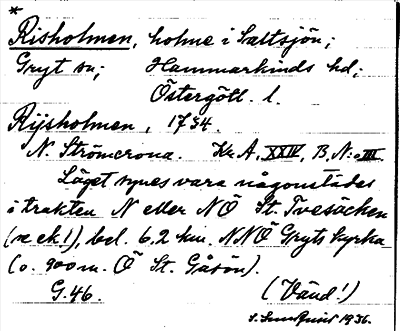 *
Risholmen, holme i Saltsjön;
Gryt sn; Hammarkinds hd;
Östergötl. l.
Rijsholmen, 1734.
N. Strömcrona. Kr. A, XXIV, B, N:o III.
Läget synes vara någonstädes
i trakten N eller NÖ St. Tvesäcken
(x ek!), bel. 6,2 km. NNÖ Gryts kyrka
(o. 900 m. Ö St. Gåsön).
G. 46. (Vänd!)
S. Sundqvist 1936.